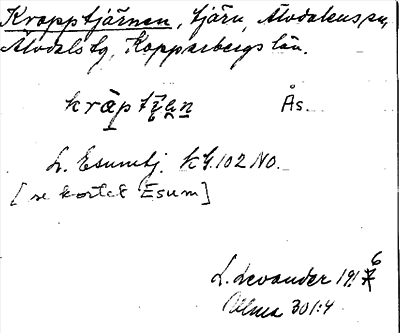 Kropptjärnen, tjärn, Älvdalens sn,
Älvdals tg, Kopparbergs län.
kràptjan Ås.
L. Esumtj. kbl.102 NO.
[se kortet Esum]
L. Levander 1916
Alma 301:4